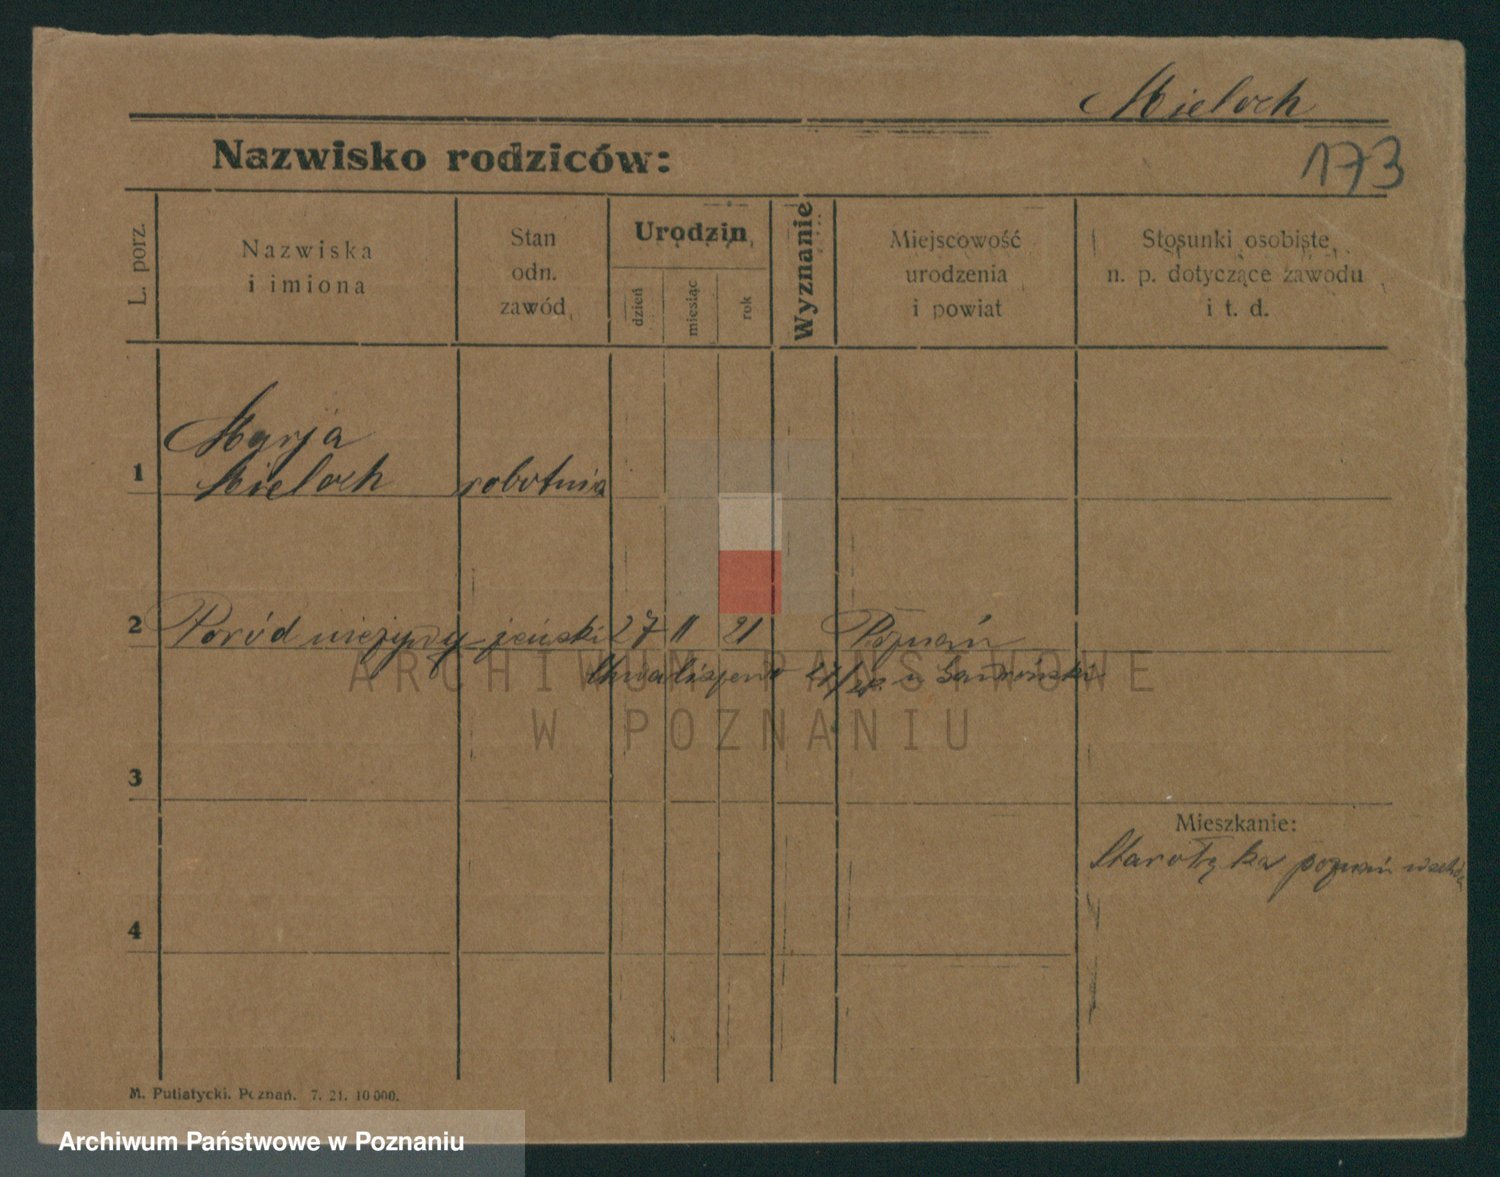 Mieloch
Nazwisko rodziców:
173
L. porz.
Nazwiska
i imiona
Stan
odn.
zawód
Urodzin
dzień
miesiąc
rok
Wyznanie
Miejscowość
urodzenia
i powiat
Stosunki osobiste,
n. p. dotyczące zawodu
i t. d.
1
Marja
Mieloch robotnica
2 Poród nieżywy żeński 27 11 21 Poznań
Chwaliszewo
ARCHIWUM PAŃSTWOWE
W POZNANIU
3
Mieszkanie:
Starołęka poznań wschód
4
M. Putiatycki. Poznań. 7. 21. 10 000.
Archiwum Państwowe w Poznaniu